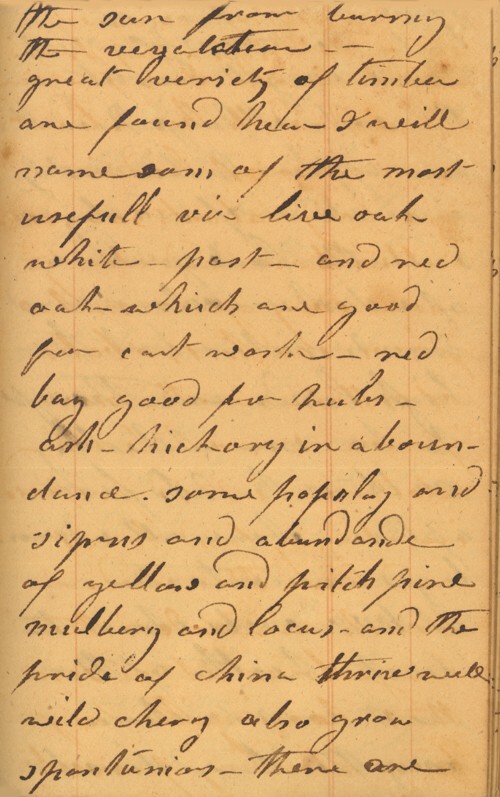 the sun from burning
the vegetation —
great veriety of timber
are found hear I will
name som of the most
usefull viz live oak
white - post - and red
oak - which are good
for cart work - red
bay good for hubs -
ash - hickory in aboun-
dance. some popolay and
siprus and abundande
of yellow and pitch pine
mulbery and locus - and the
pride of china thrive well
wild chery also grow
spontanios - there are